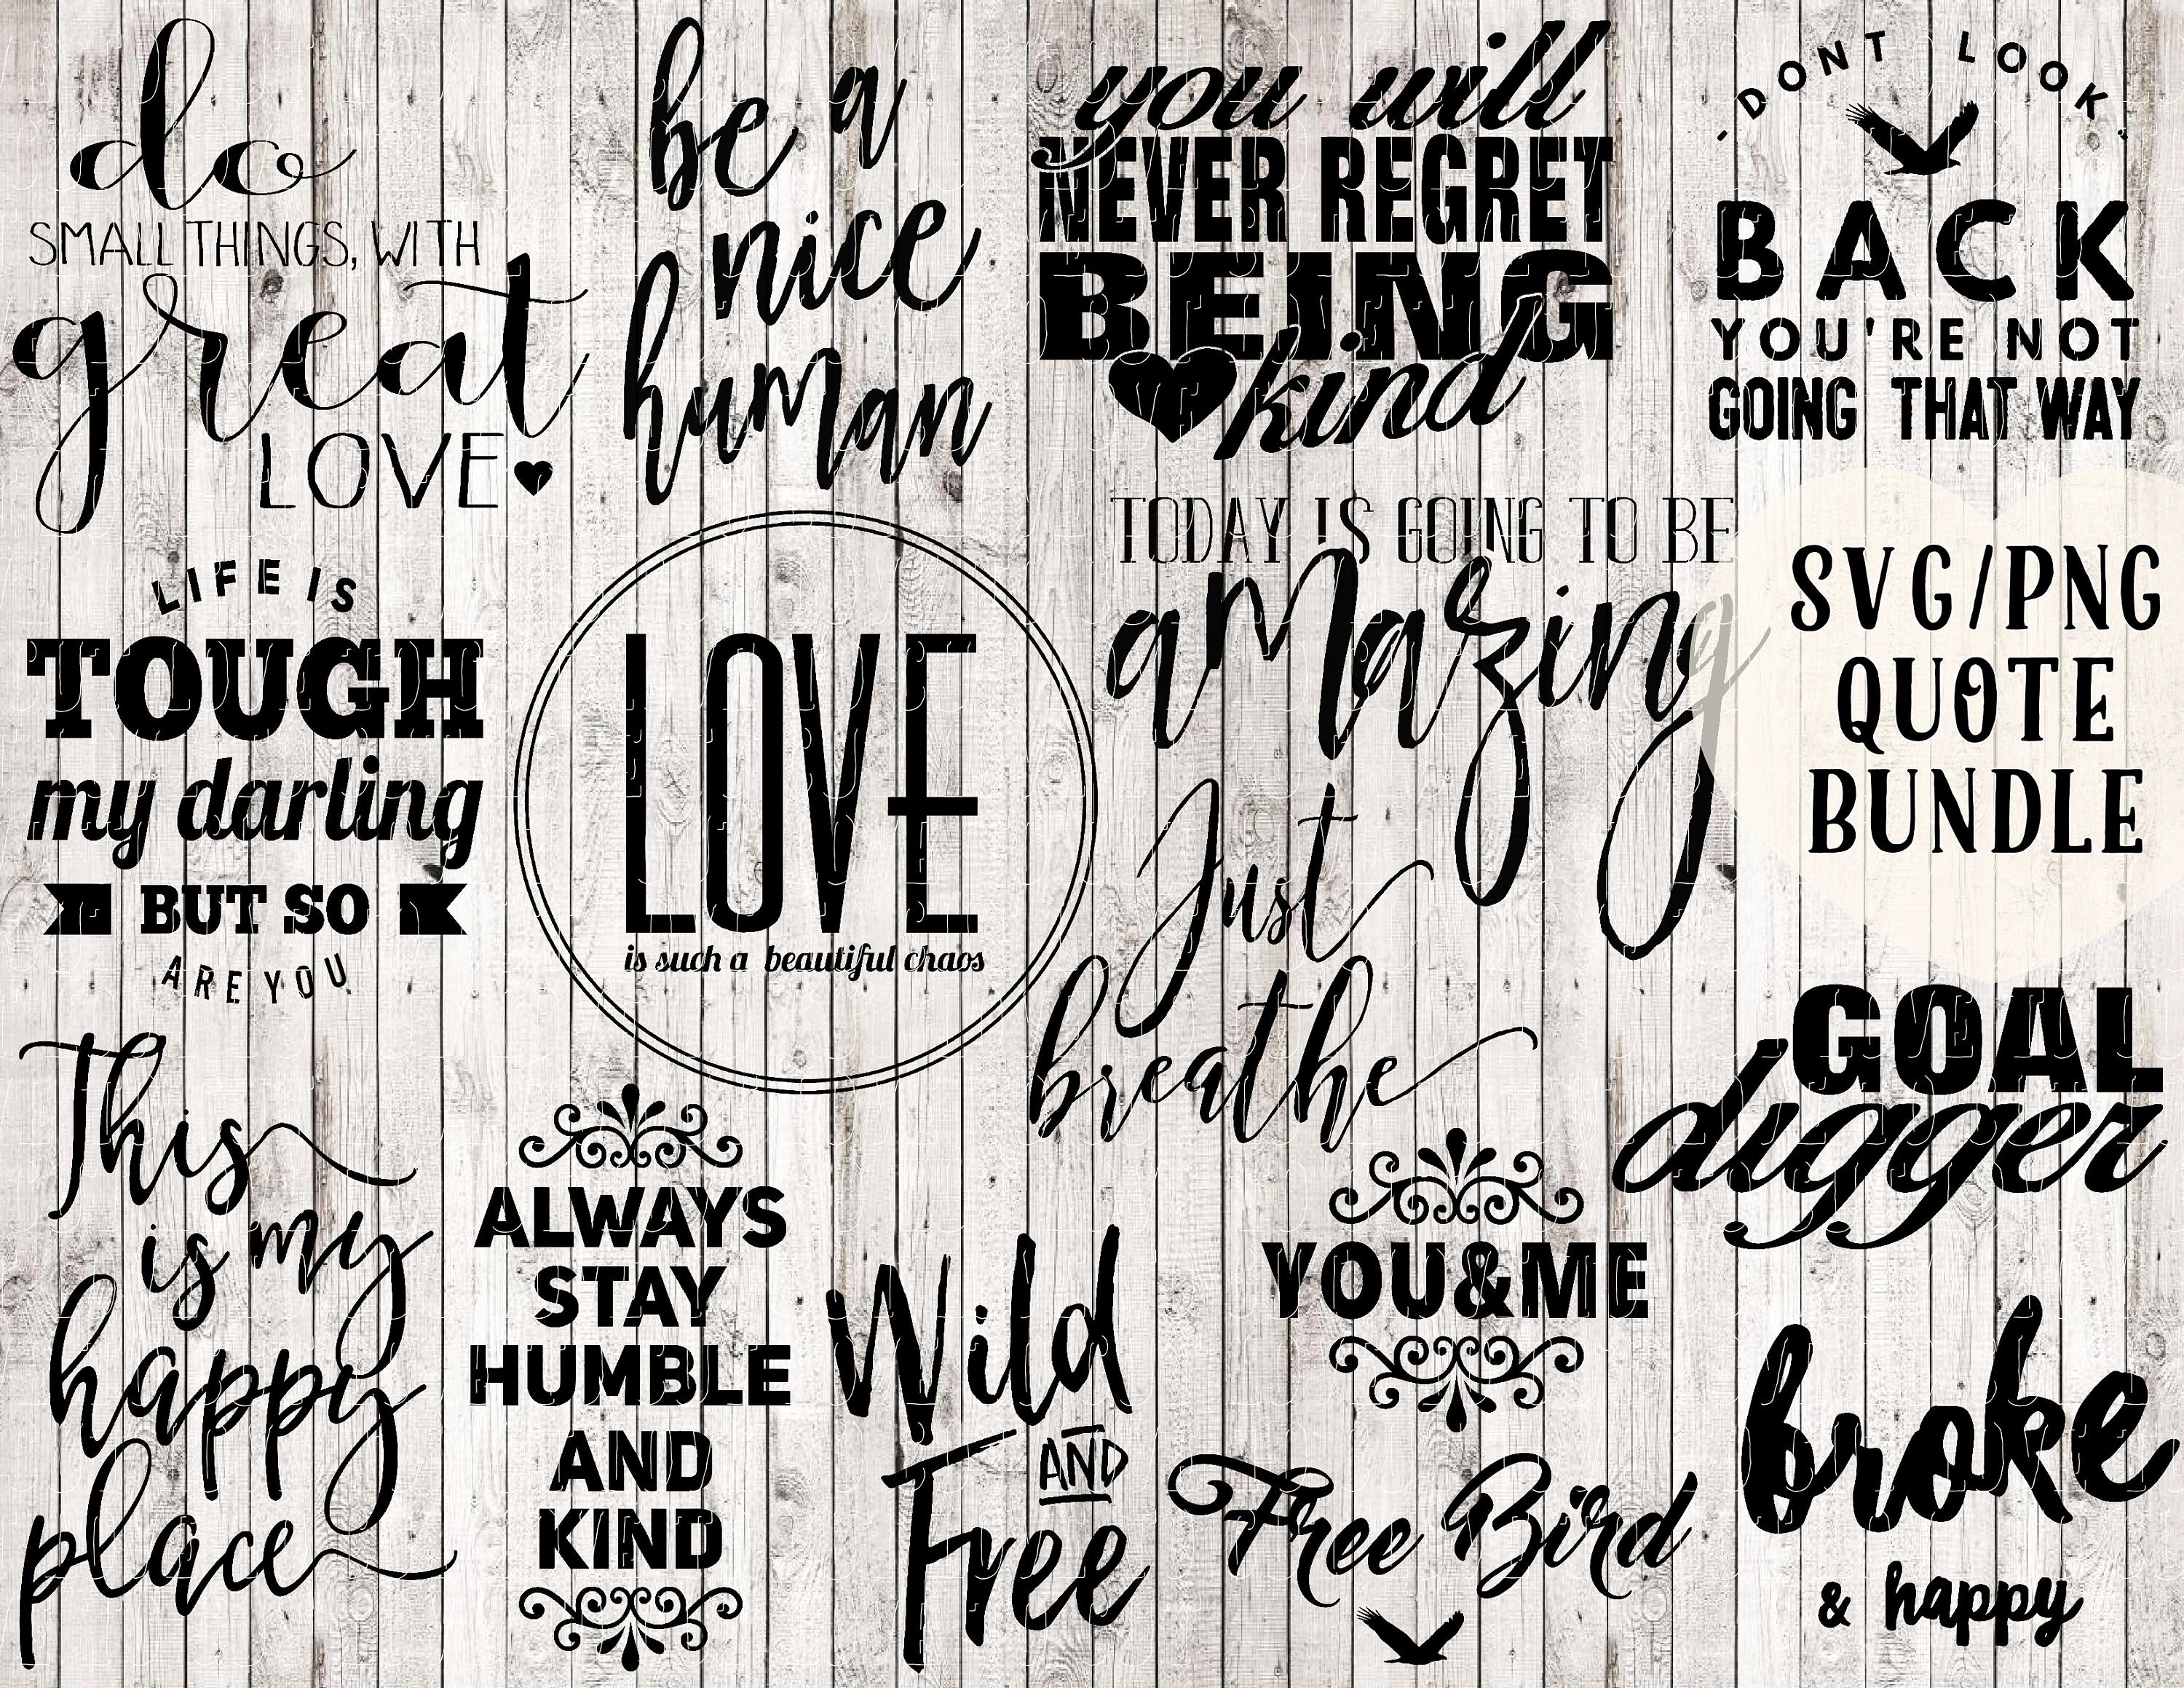 do
SMALL THINGS, WITH
great
LOVE
be a
nice
human
you will
NEVER REGRET
BEING
kind
DONT LOOK
BACK
YOU'RE NOT
GOING THAT WAY
LIFE IS
TOUGH
my darling
BUT SO
ARE YOU
LOVE
is such a beautiful chaos
TODAY IS GOING TO BE
amazing
SVG/PNG
QUOTE
BUNDLE
Just
breathe
GOAL
digger
This
is my
happy
place
ALWAYS
STAY
HUMBLE
AND
KIND
Wild
AND
Free
YOU&ME
Free Bird
broke
& happy